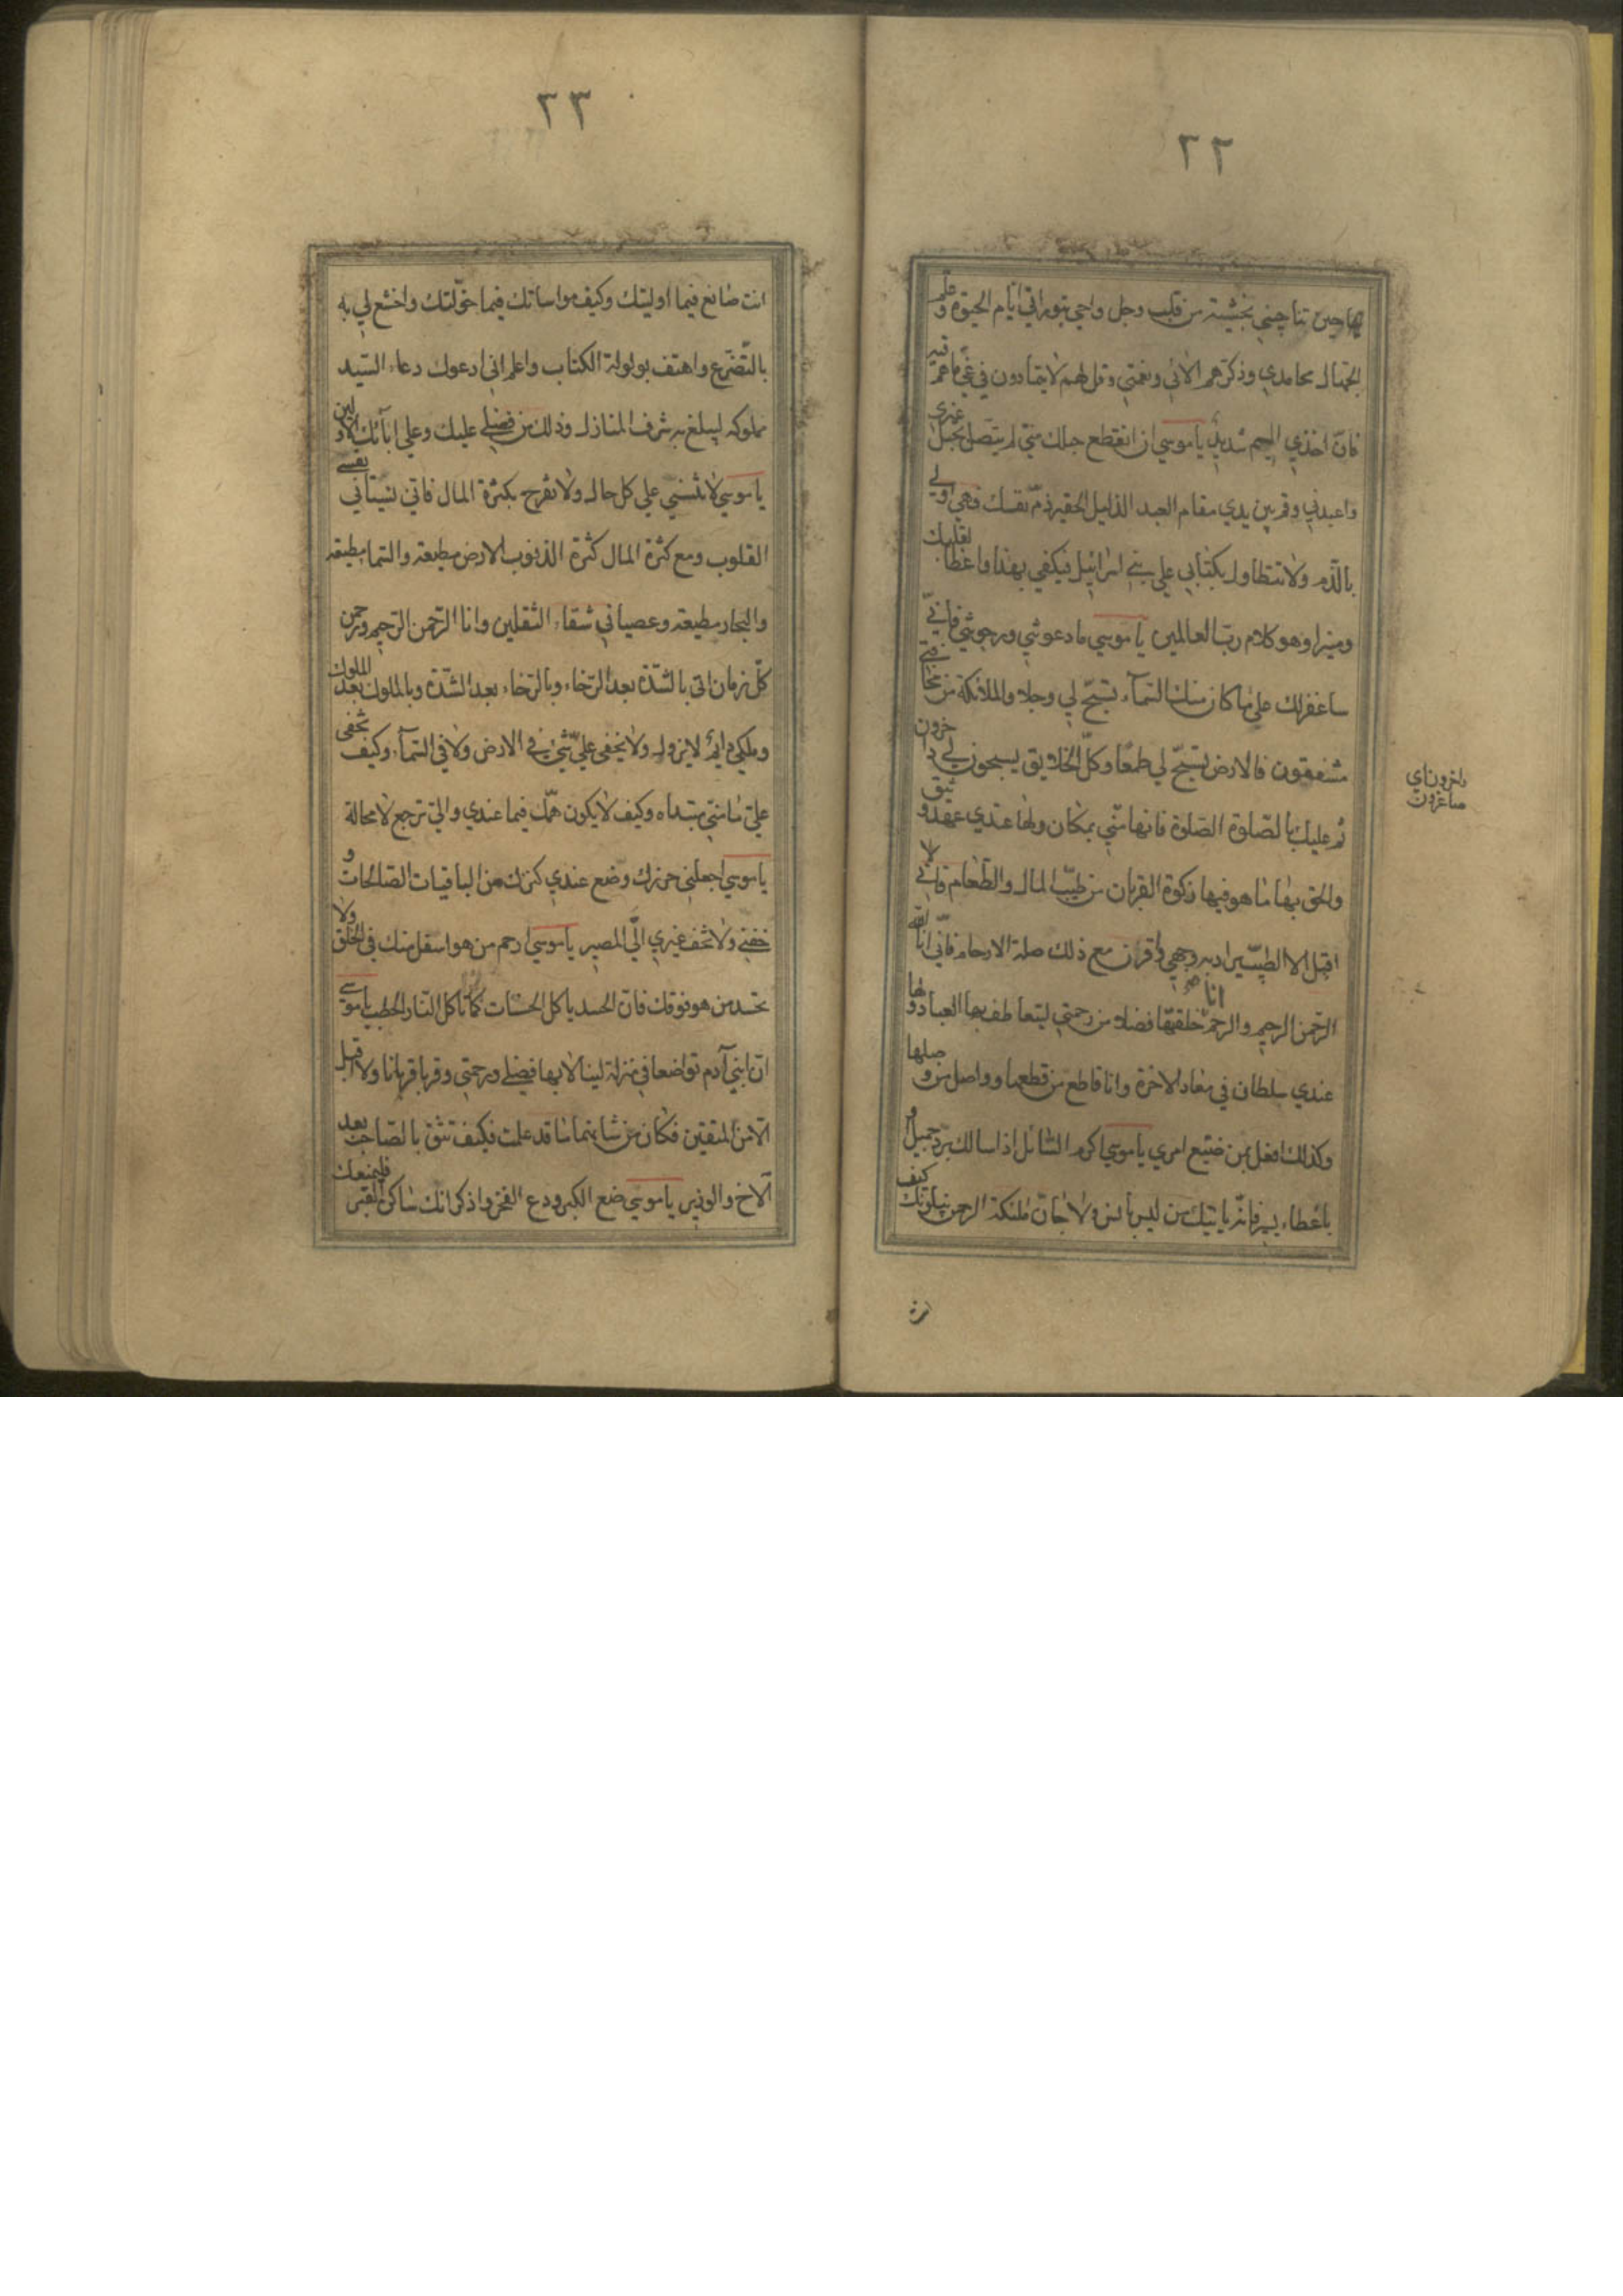 ٢٢
بها حين تناجيني بخشية من قلب وجل واحي بتوراتي ايّام الحيوة وعلّم
الجهّال محامدي وذكّرهم الائي ونعمتي وقل لهم لا يتمادون في غيّ ما هم فيه
فانّ اخذي اليم شديد يا موسي ان انقطع حبلك منّي لم يتّصل بحبل غيري
واعبدني وقم بين يدي مقام العبد الذليل الحقير ذمّ نفسك فهي اولي
بالذّم ولا تتطاول بكتابي علي بني اسرائيل فيكفي بهذا واعظا لقلبك
ومنيرا وهو كلام ربّ العالمين يا موسي ما دعوتني ورجوتني فانّي
ساغفر لك علي ما كان منك السّمآء تسبّح لي وجلا والملائكة من مخافتي
مشفقون فالارض تسبّح لي طمعًا وكلّ الخلايق يسبحون لي داخرون
ثم عليك بالصّلوة الصّلوة فانها منّي بمكان ولها عندي عهد وثيق
والحق بها ما هو فيها زكوة القربان من طيّب المال والطّعام فانّي لا
اقبل الا الطيّب يراد به وجهي واقرن مع ذلك صلة الارحام فانّي انا اللّه
الرّحمن الرحيم والرحم انا خلقتها فضلا من رحمتي ليتعاطف بها العباد ولها
عندي سلطان في معاد الاخرة وانا قاطع من قطعها وواصل من وصلها
وكذلك افعل بمن ضيّع امري يا موسي اكرم السّائل اذا سالك بردّ جميل او
باعطاء يسير فانّه ياتيك من ليس بانس ولا جانّ ملئكة الرحمن يبلونك كيف
داخرون اي
صاغرون
انت
٢٣
انت صانع فيما اوليتك وكيف مواساتك فيما خوّلتك واخشع لي به
بالتّضرّع واهتف بولولة الكتاب واعلم اني ادعوك دعاء السّيد
مملوكه ليبلغ به شرف المنازل وذلك من فضلي عليك وعلي ابآئك الاولين
يا موسي لا تنسني علي كل حال ولا تفرح بكثرة المال فانّ نسياني يقسي
القلوب ومع كثرة المال كثرة الذنوب الارض مطيعة والسّما مطيعة
والبحار مطيعة وعصياني شقاء الثقلين وانا الرّحمن الرّحيم ورحمن
كلّ زمان اتي بالشدّة بعد الرّخاء وبالرّخاء بعد الشدّة وبالملوك بعد الملوك
وملكي دايم لا يزول ولا يخفي عليّ شئ في الارض ولا في السّمآء وكيف يخفي
عليّ ما منّي مبتداه وكيف لا يكون همّك فيما عندي واليّ ترجع لا محالة
يا موسي اجعلني حرزك وضع عندي كنزك من الباقيات الصّالحات و
خفني ولا تخف غيري اليّ المصير يا موسي ارحم من هو اسفل منك في الخلق ولا
تحسد من هو فوقك فانّ الحسد ياكل الحسنات كما تاكل النّار الحطب يا موسي
انّ ابني آدم تواضعا في منزلة لينالا بها فضلي ورحمتي وقربا قربانا ولا اقبل
الّا من المتقين فكان من شانهما ما قد علمت فكيف تثق بالصّاحب بعد
الاخ والوزير يا موسي ضع الكبر ودع الفخر واذكر انك ساكن القبر فليمنعك